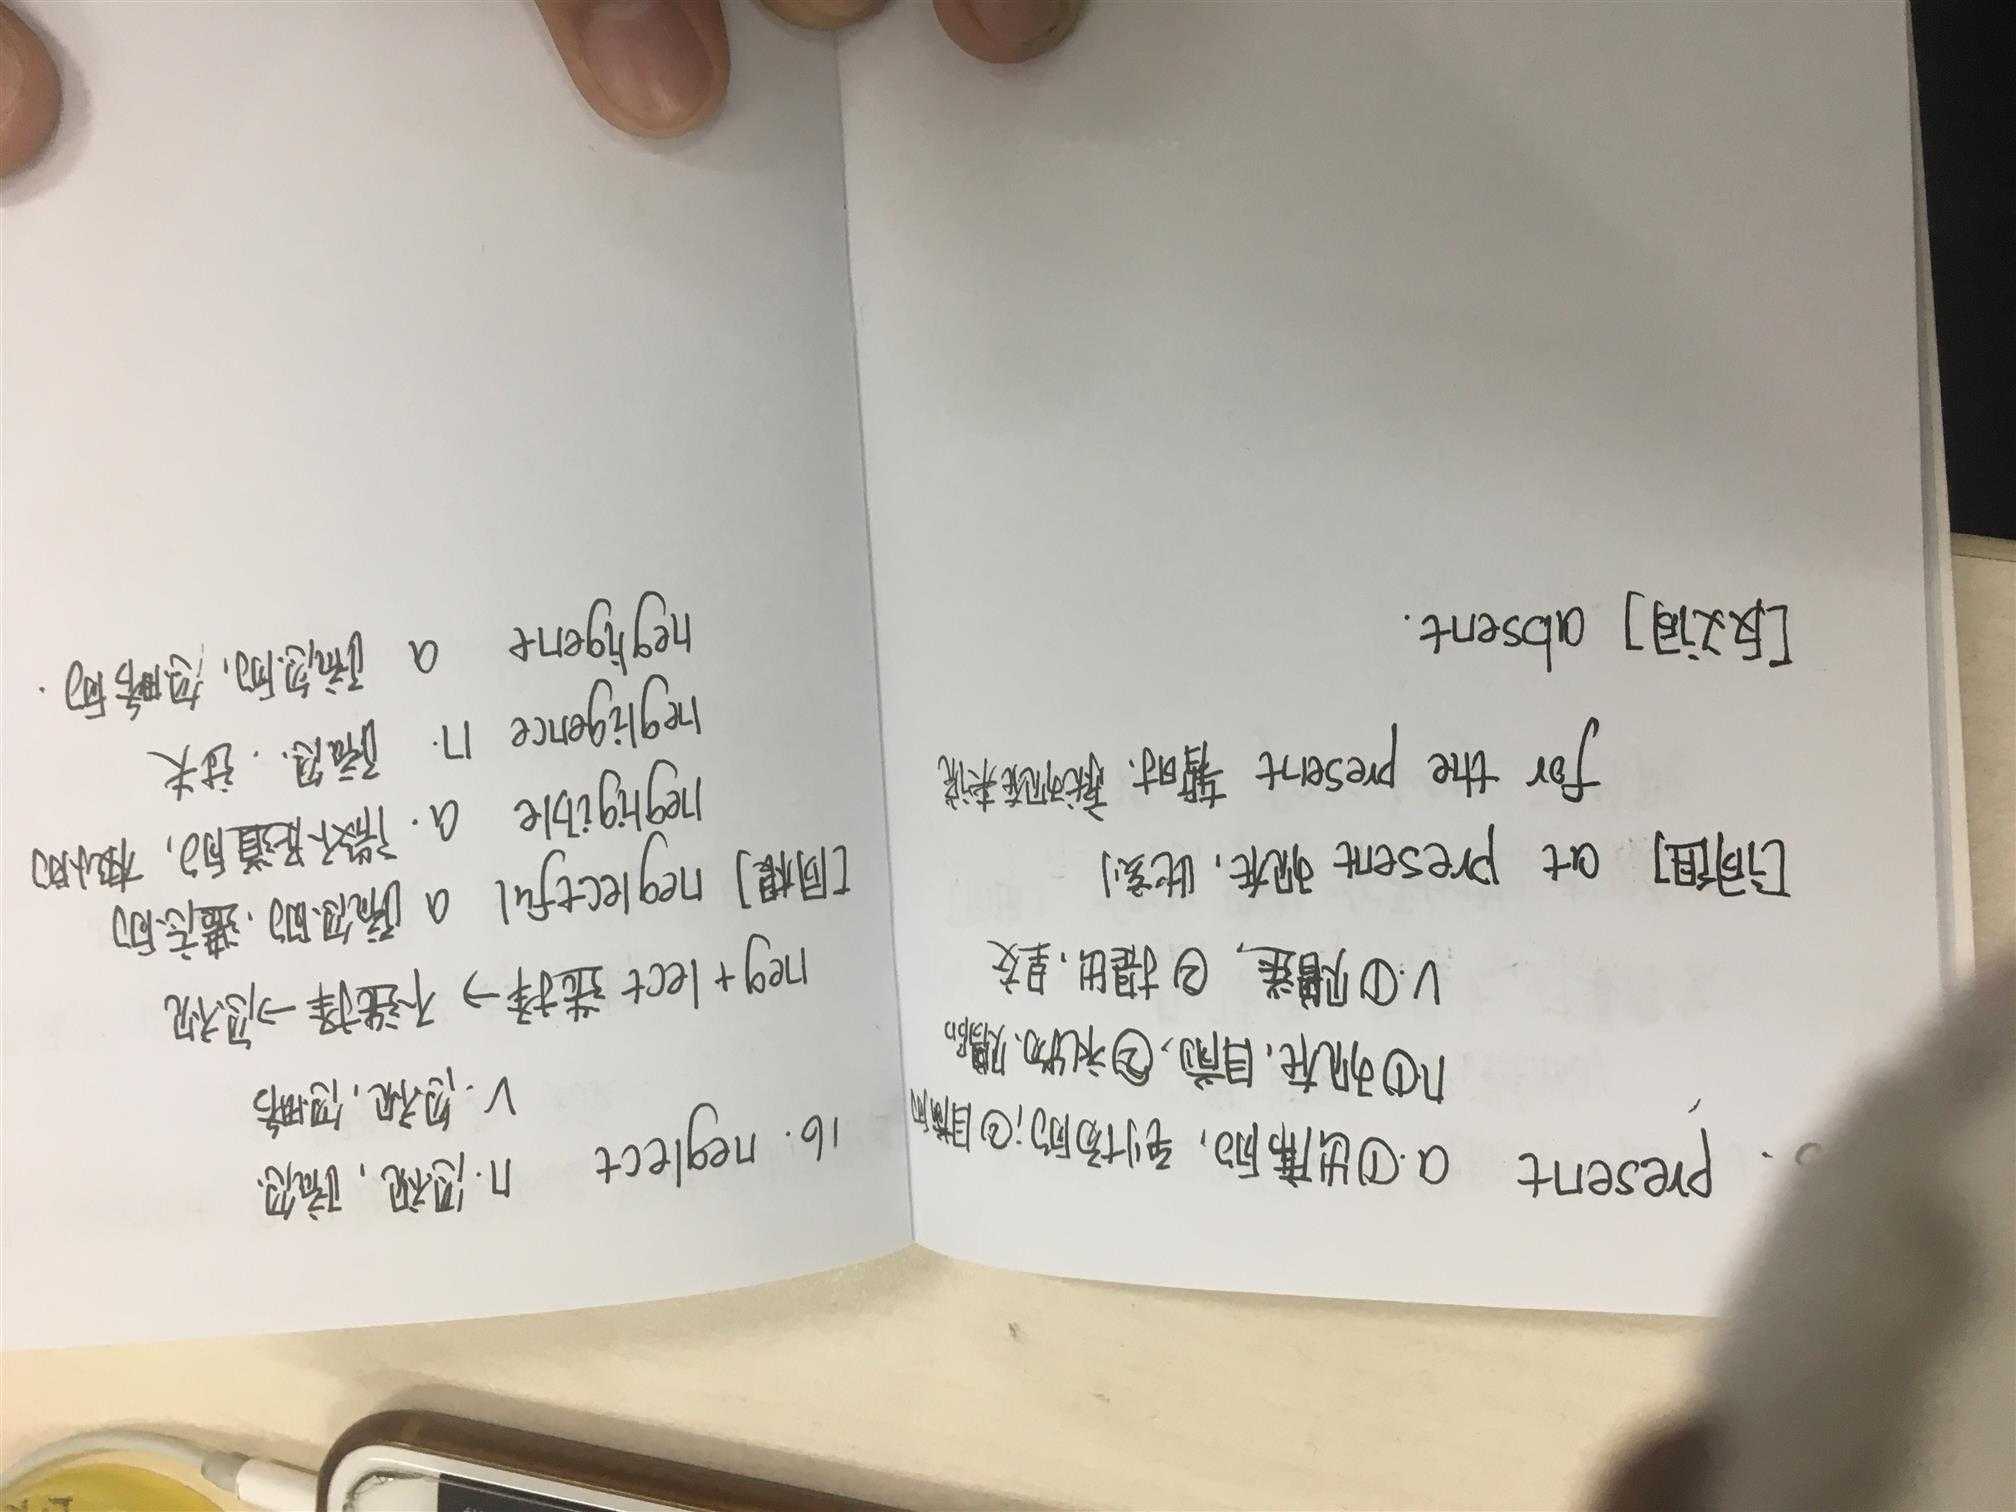 present a.①出席的, 到场的; ②目前的
n①现在, 目前, ②礼物, 赠品
v.①赠送, ②提出, 呈交
[词组] at present 现在, 此刻
for the present 暂时, 就现在来说
[反义词] absent.
16. neglect n.忽视, 疏忽.
v.忽视, 忽略
neg+lect 选择→不选择→忽视
[同根] neglectful a 疏忽的, 遗忘的
negligible a. 微不足道的, 极小的
negligence n. 疏忽. 过失
negligent a 疏忽的, 忽略的.